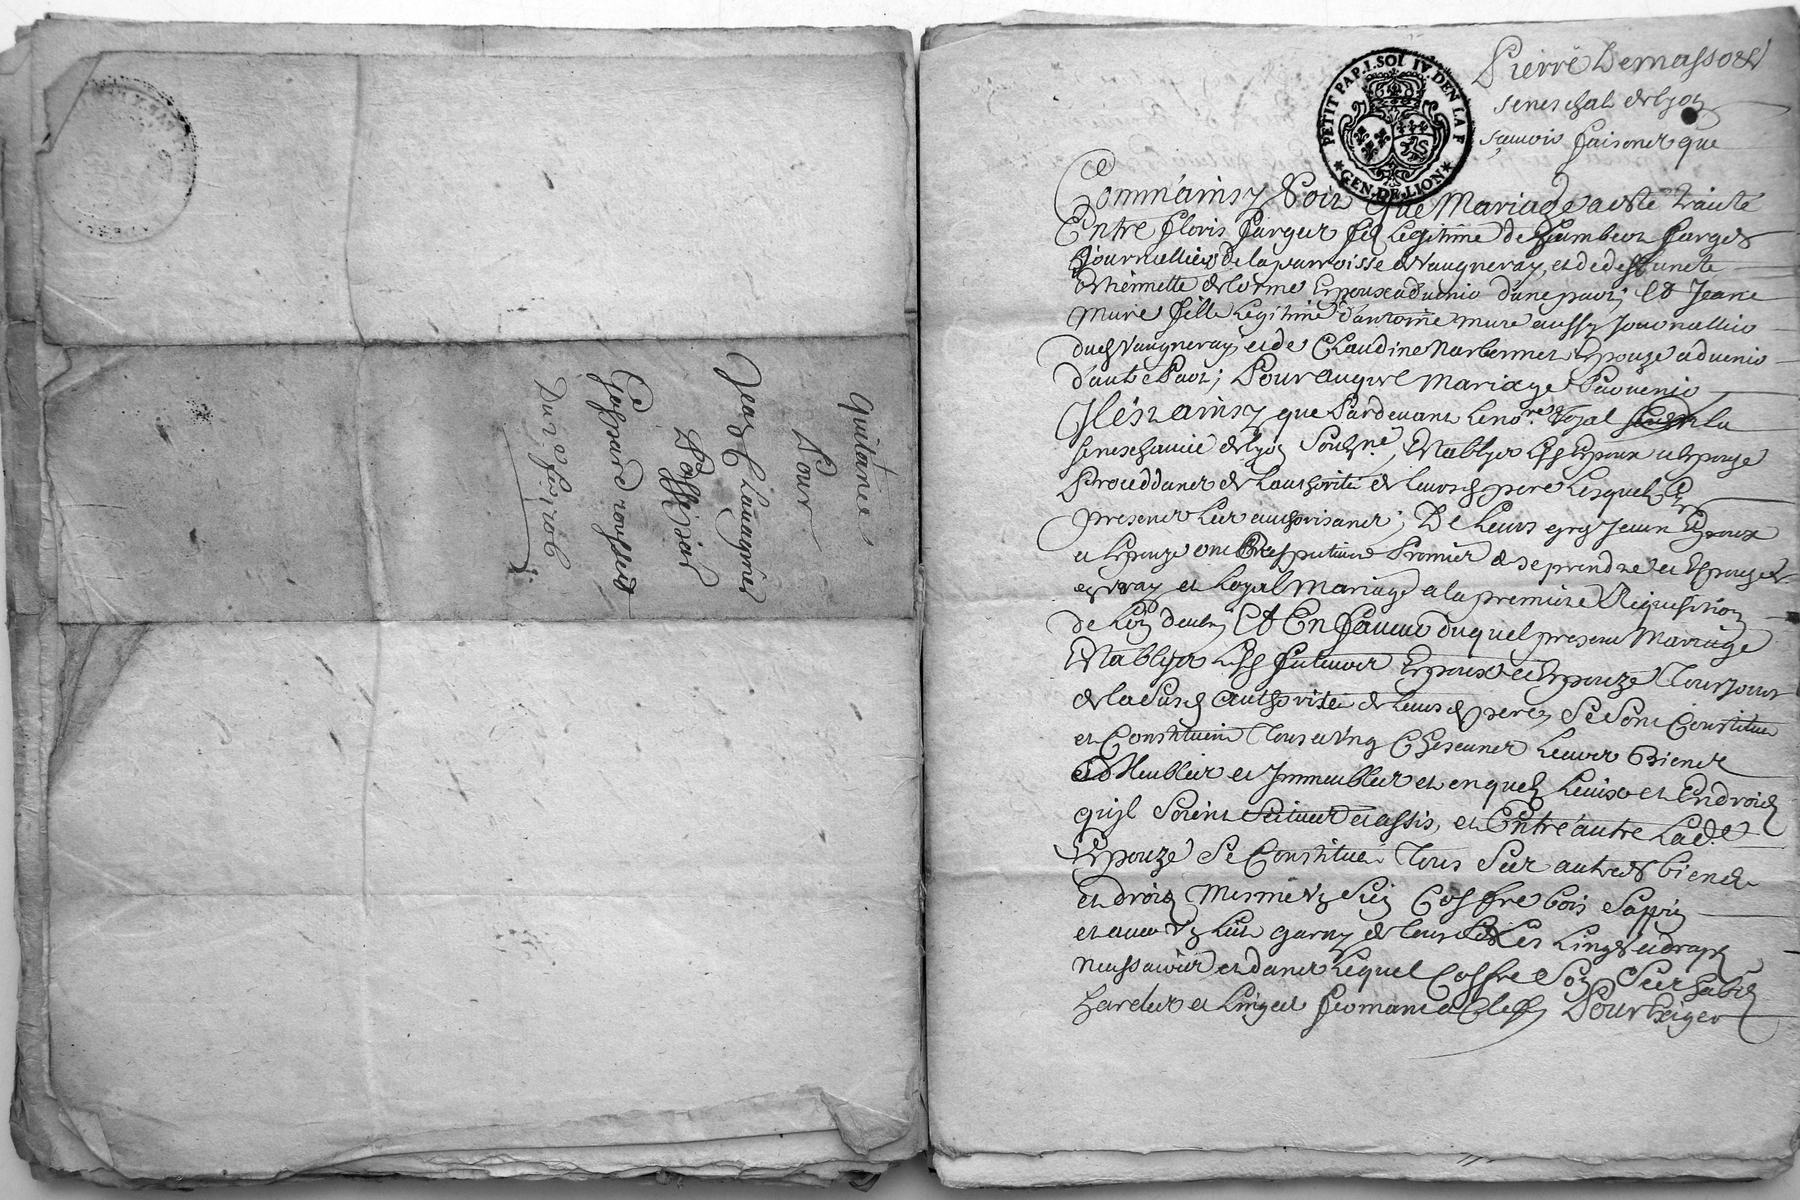 Quitance
Pour
Jean Chauagnie
Gaspard rousset
PETIT PAP. I. SOL IV. DEN LA F
GEN. DE LION
Pierre Demasso
seneschal de lyon
sçauoir faisons que
Comm'ainsy soit que Mariage a esté traicté
Entre floris farges fils Legitime de farges
Journallier de la parroisse de Vaugneray, et de deffuncte
Estiennette de lorme Espoux aduenir d'une part; Et Jeane
Mure fille Legitime d'antoine mure aussy Journallier
dud Vaugneray et de Claudine Espouze aduenir
d'autre Part; Pour auquel Mariage Paruenir
Il est ainsy que Pardeuant Le no.re Royal en la
seneschaucé de lyon Soubz.né, Establys Les Espoux et Espouze
Proceddants de Lauthorité de leurs pere Lesquels
presents Les authorisants; De Leurs gré Iceux Espoux
et Espouze ont Respectiuement Promis de se prendre et Espouzer
en vray et Loyal Mariage a la premiere Requisition
de Lun deulx Et En faueur duquel present Mariage
Establys Lesd futeurs Espoux et Espouze Tousjours
de la Susd authorité de leurs pere Se sont Constitué
et Constituent Tous et Chescuns Leurs Biens
Meubles et Immeubles et en quels Lieux et Endroits
quil Soient Scitues et assis, et Entre autre Lad.e
Espouze Se Constitue Tous Ses autres biens
et droits Mesme Vn Coffre bois Sapin
et auec Vn Lict garny de Les Linge et draps
necessaires et dans Lequel Coffre Son Ses habits
hardes et Linges fermant a Cleff Pour